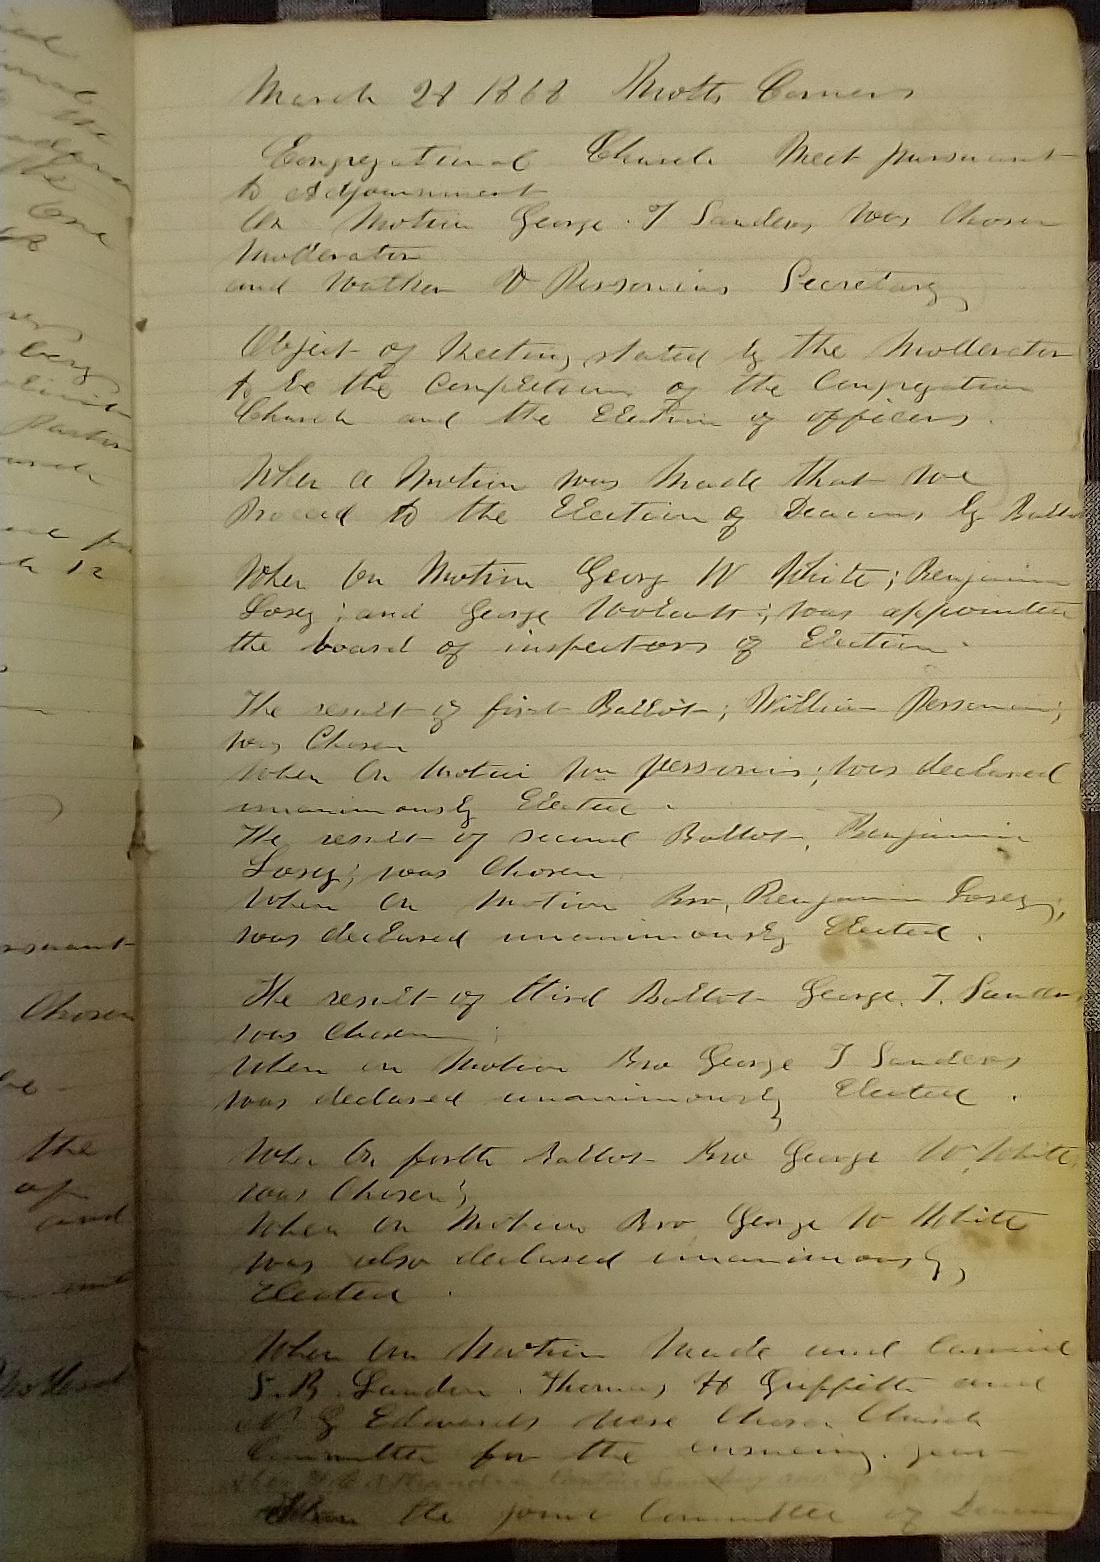 March 28 1868 Motts Corners
Congregational Church Meet pursuant
to Adjournment
On Motion George T Sanders was Chosen
Moderator
and Nathan D Personius Secretary
Object of Meeting stated by the Moderator
to be the Completion of the Congregation
Church and the Election of officers.
When a Motion was Made that we
Proceed to the Election of Deacons by Ballot
When On Motion Georg W White; Benjamin
Losey; and George Wolcott; was appointed
the board of inspectors of Election.
The result of first Ballot; William Personius;
was Chosen
When On Motion Wm personius; was declared
unanimously Elected.
The result of second Ballot, Benjamin
Losey; was Chosen
When On Motion Bro, Benjamin Losey;
was declared unanimously Elected.
The result of third Ballot George. T. Sanders
was Chosen
When on Motion Bro George T Sanders
was declared unanimously Elected.
When On forth Ballot Bro George W. White
was Chosen;
When on Motion Bro George W White
was also declared unanimously,
Elected.
When On Motion Made and Carried
S. B. Landon. Thomas H Griffith and
N G Edwards were Chosen Church
Committee for the ensueing. year
the joint Committee of Deacon